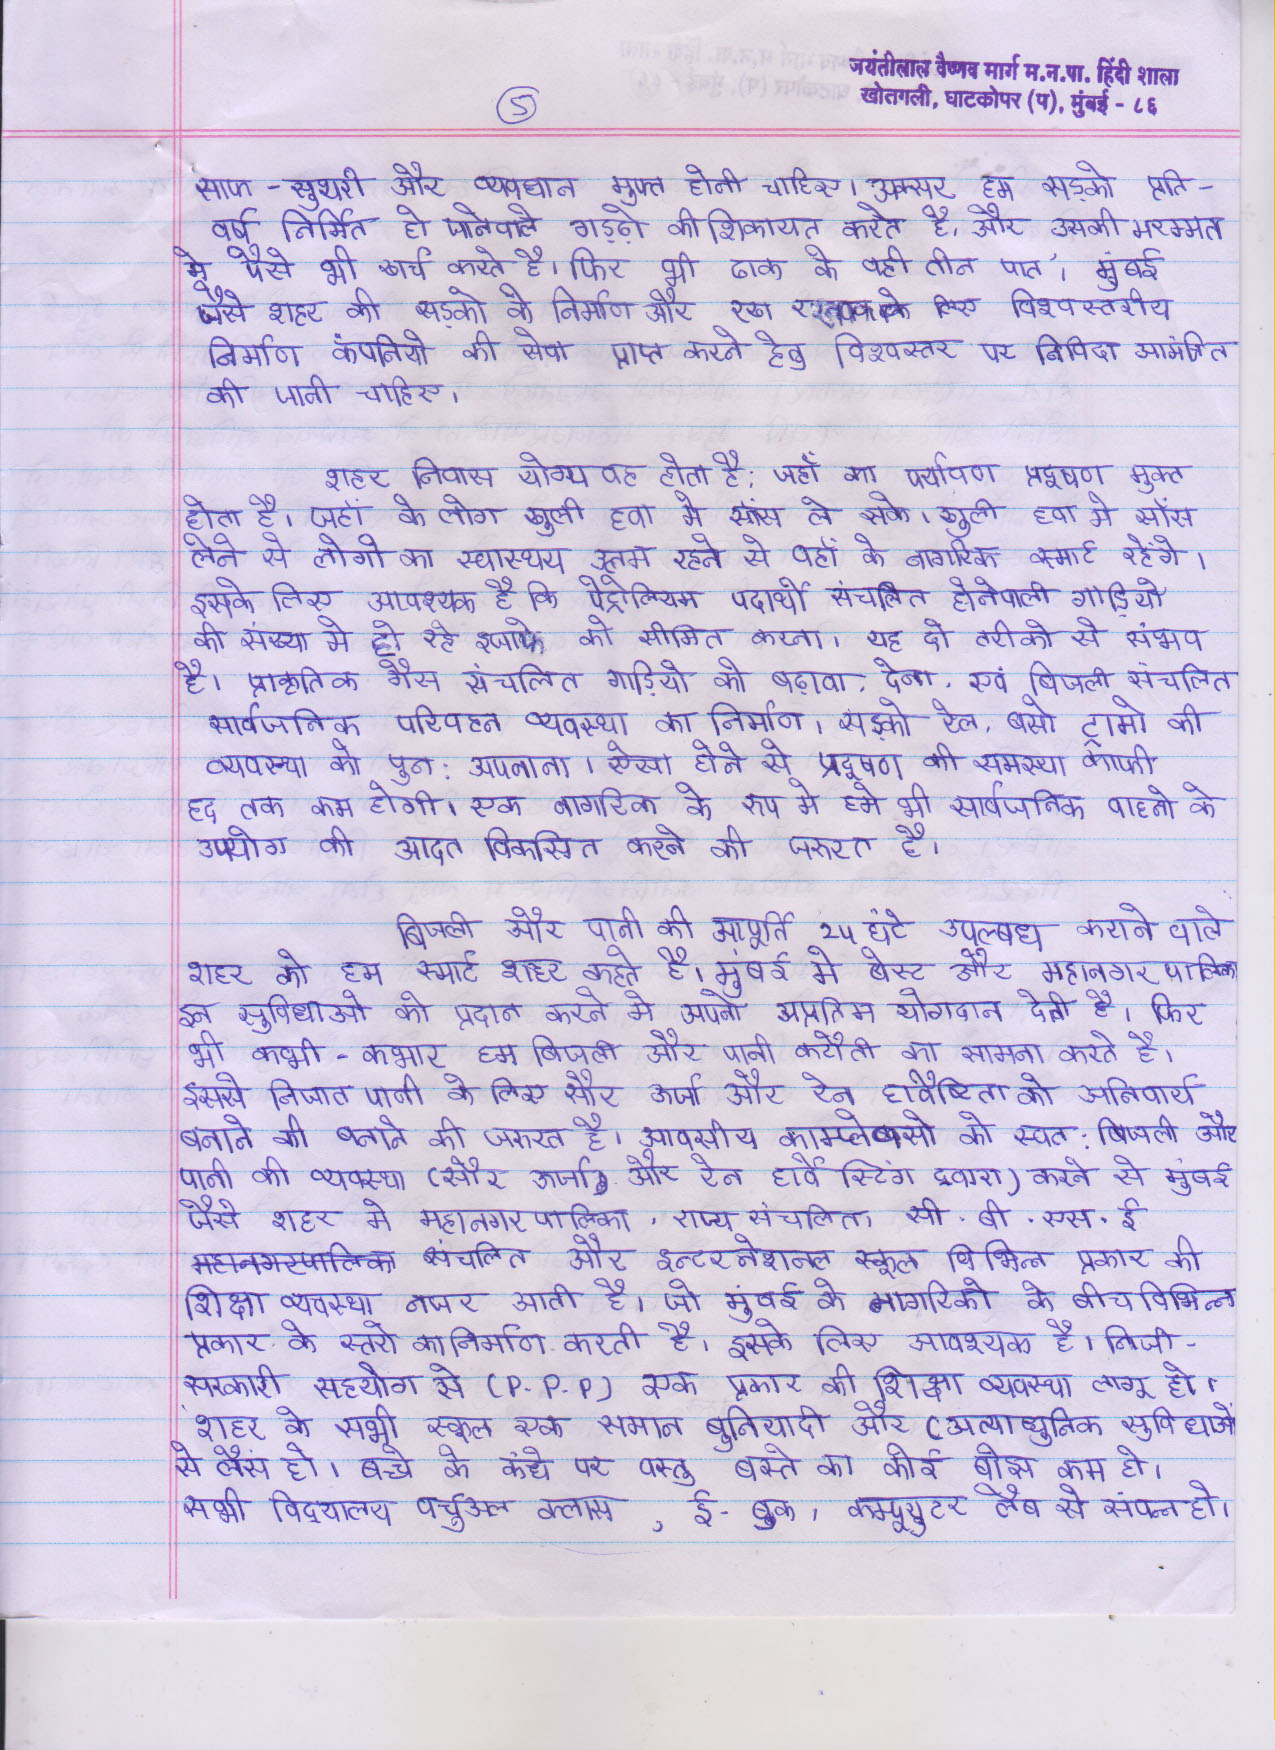 जयंतीलाल वैष्णव मार्ग म.न.पा. हिंदी शाला
खोतगली, घाटकोपर (प), मुंबई - ८६
5
साफ - सुथरी और व्यवधान मुक्त होनी चाहिए। अक्सर हम सड़को प्रति-
वर्ष निर्मित हो जानेवाले गड्ढ़ो की शिकायत करते है, और उसकी मरम्मत
मे पैसे भी खर्च करते है। फिर भी ढाक के वही तीन पात'। मुंबई
जैसे शहर की सड़को के निर्माण और रख रखाव के लिए विश्वस्तरीय
निर्माण कंपनियो की सेवा प्राप्त करने हेतु विश्वस्तर पर निविदा आमंत्रित
की जानी चाहिए,
शहर निवास योग्य वह होता है; जहाँ का पर्यावण प्रदूषण मुक्त
होता है। जहाँ के लोग खुली हवा मे साँस ले सके। खुली हवा मे साँस
लेने से लोगो का स्वास्थय उत्तम रहने से वहाँ के नागरिक स्मार्ट रहेंगे।
इसके लिए आवश्यक है कि पेट्रोलियम पदार्थो संचलित होनेवाली गाड़ियो
की संख्या मे हो रहे इजाफे को सीमित करना। यह दो तरीको से संभव
है। प्राकृतिक गैस संचलित गाड़ियो को बढ़ावा, देना, एवं बिजली संचलित
सार्वजनिक परिवहन व्यवस्था का निर्माण। सड़को रेल, बसो ट्रामो की
व्यवस्था को पुन: अपनाना। ऐसा होने से प्रदूषण की समस्या काफी
हद तक कम होगी। एक नागरिक के रुप मे हमे भी सार्वजनिक वाहनो के
उपयोग की आदत विकसित करने की जरुरत है।
बिजली और पानी की आपूर्ति 24 घंटे उपल्बध कराने वाले
शहर को हम स्मार्ट शहर कहते है। मुंबई मे बेस्ट और महानगर पालिका
इन सुविधाओ को प्रदान करने मे अपनो अप्रतिम योगदान देती है। फिर
भी कभी - कभार हम बिजली और पानी कटौती का सामना करते है।
इससे निजात पानी के लिए सौर ऊर्जा और रेन हार्वेष्टिता को अनिवार्य
बनाने की बनाने की जरुरत है। आवसीय काम्प्लेक्सो को स्वत: बिजली और
पानी की व्यवस्था (सौर ऊर्जा) और रेन हार्वे स्टिंग द्वारा) करने से मुंबई
जैसे शहर मे महानगर पालिका, राज्य संचलित, सी. बी. एस. ई
महानगरपालिका संचलित और इन्टरनेशनल स्कूल विभिन्न प्रकार की
शिक्षा व्यवस्था नजर आती है। जो मुंबई के नागरिको के बीच विभिन्न
प्रकार के स्तरो का निर्माण करती है। इसके लिए आवश्यक है। निजी-
सरकारी सहयोग से (P.P.P) एक प्रकार की शिक्षा व्यवस्था लागू हो।
शहर के सभी स्कूल एक समान बुनियादी और (अत्याधुनिक सुविधाओं
से लैस हो। बच्चे के कंधे पर वस्तु बस्ते का कोई बोझ कम हो।
सभी विद्यालय वर्चुअल क्लास, ई- बुक, कम्प्यूटर लैब से संपन्न हो।